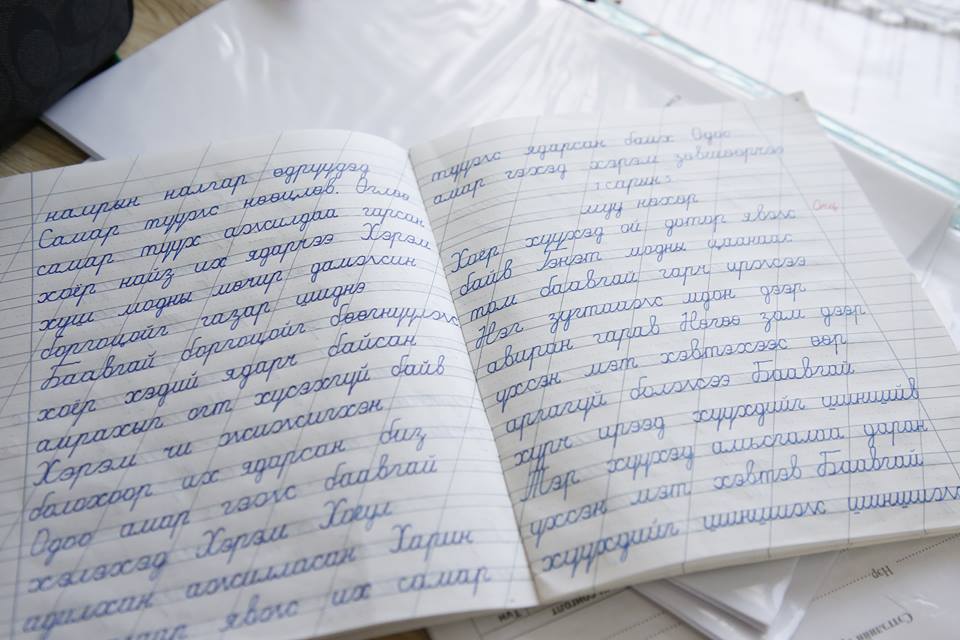 намрын налгар өдрүүдэд
Самар түүж нөөцлөв. Өглөө
самар түүх ажилдаа гарсан
хоёр найз их ядарчээ Хэрэм
хуш модны мөчир дамжин
боргоцойг газар шиднэ
Баавгай боргоцойг бөөгнүүлж
хоёр хэдий ядарч байсан
амрахыг огт хүсэхгүй байв
Хэрэм чи жижигхэн
болохоор их ядарсан биз
Одоо амар гэж баавгай
хэлэхэд Хэрэм Хоёул
адилхан ажилласан Харин
явж их самар
түүж ядарсан байх Одоо
амар гэхэд хэрэм зөвшөөрчээ
1 сарын 5
муу нөхөр
Хоёр хүүхэд ой дотор явж
байв Гэнэт модны цаанаас
том баавгай гарч иржээ
Нэг зугтааж мдон дээр
авиран гарав Нөгөө зам дээр
үхсэн мэт хэвтэхээс өөр
аргагүй болжээ Баавгай
хүрч ирээд хүүхдийг шиншйв
Тэр хүүхэд амьсгалаа даран
үхсэн мэт хэвтэв Баавгай
хүүхдийг шиншиж шиншиж
Нэр